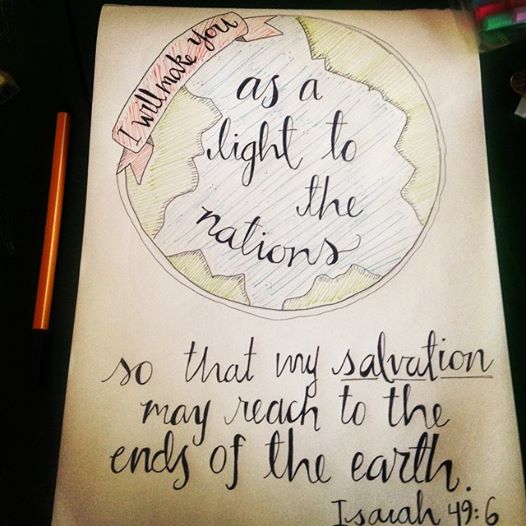 I will make you
as a
light to
the
nations
so that my salvation
may reach to the
ends of the earth.
Isaiah 49:6